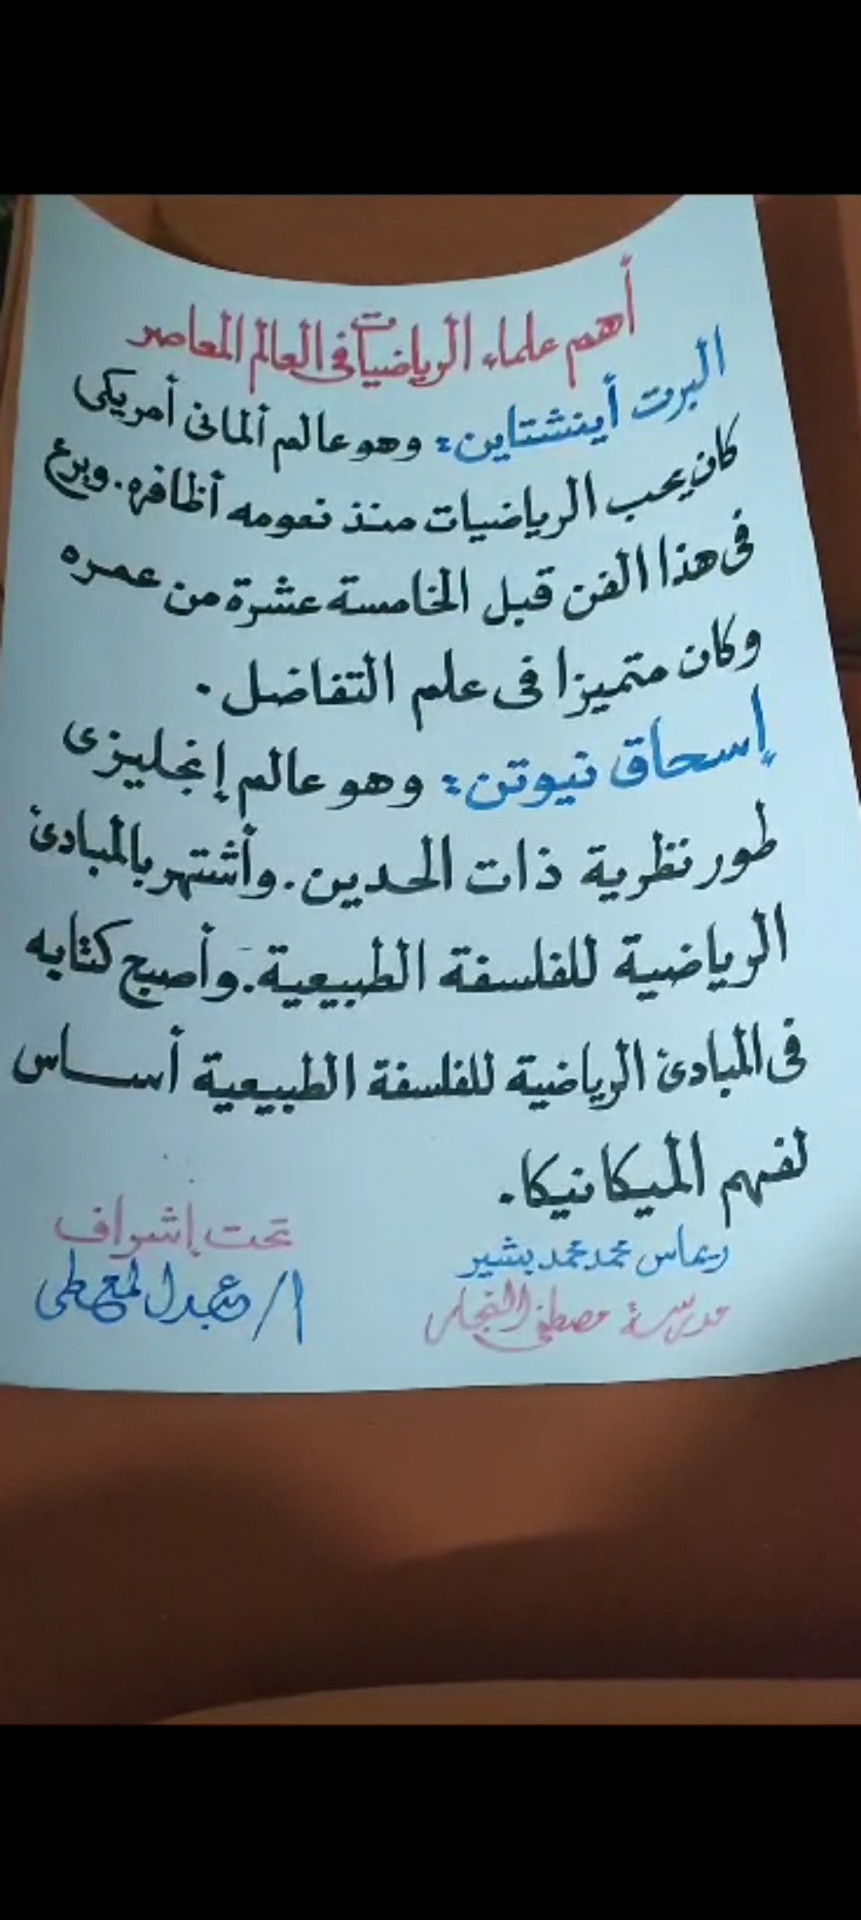 أهم علماء الرياضيات في العالم المعاصر
البرت أينشتاين: وهو عالم ألمانى أمريكى
كان يحب الرياضيات منذ نعومه أظافره. وبرع
فى هذا الفن قبل الخامسة عشرة من عمره
وكان متميزا فى علم التفاضل.
إسحاق نيوتن: وهو عالم إنجليزى
طور نظرية ذات الحدين. وأشتهر بالمبادئ
الرياضية للفلسفة الطبيعية. وأصبح كتابه
فى المبادئ الرياضية للفلسفة الطبيعية أساس
لفهم الميكانيكا.
ريماس محمد محمد بشير
مدرسة مصطفى النجار
تحت إشراف
أ/